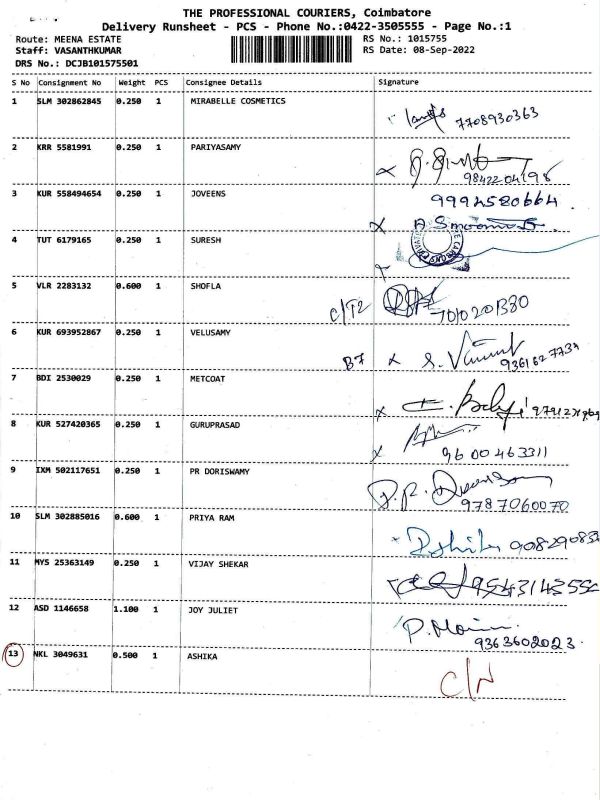 THE PROFESSIONAL COURIERS, Coimbatore
Delivery Runsheet - PCS - Phone No.:0422-3505555 - Page No.:1
Route: MEENA ESTATE RS No.: 1015755
Staff: VASANTHKUMAR RS Date: 08-Sep-2022
DRS No.: DCJB101575501
S No Consignment No Weight PCS Consignee Details Signature
1 SLM 302862845 0.250 1 MIRABELLE COSMETICS
7708930363
2 KRR 5581991 0.250 1 PARIYASAMY
9842204196
3 KUR 558494654 0.250 1 JOVEENS 9994580664
4 TUT 6179165 0.250 1 SURESH
5 VLR 2283132 0.600 1 SHOFLA
C/T2
6 KUR 693952867 0.250 1 VELUSAMY
B7 x
7 BDI 2530029 0.250 1 METCOAT
8 KUR 527420365 0.250 1 GURUPRASAD
9600463311
9 IXM 502117651 0.250 1 PR DORISWAMY
9787060070
10 SLM 302885016 0.600 1 PRIYA RAM
11 MYS 25363149 0.250 1 VIJAY SHEKAR
12 ASD 1146658 1.100 1 JOY JULIET
9363602023
13 NKL 3049631 0.500 1 ASHIKA
C/N